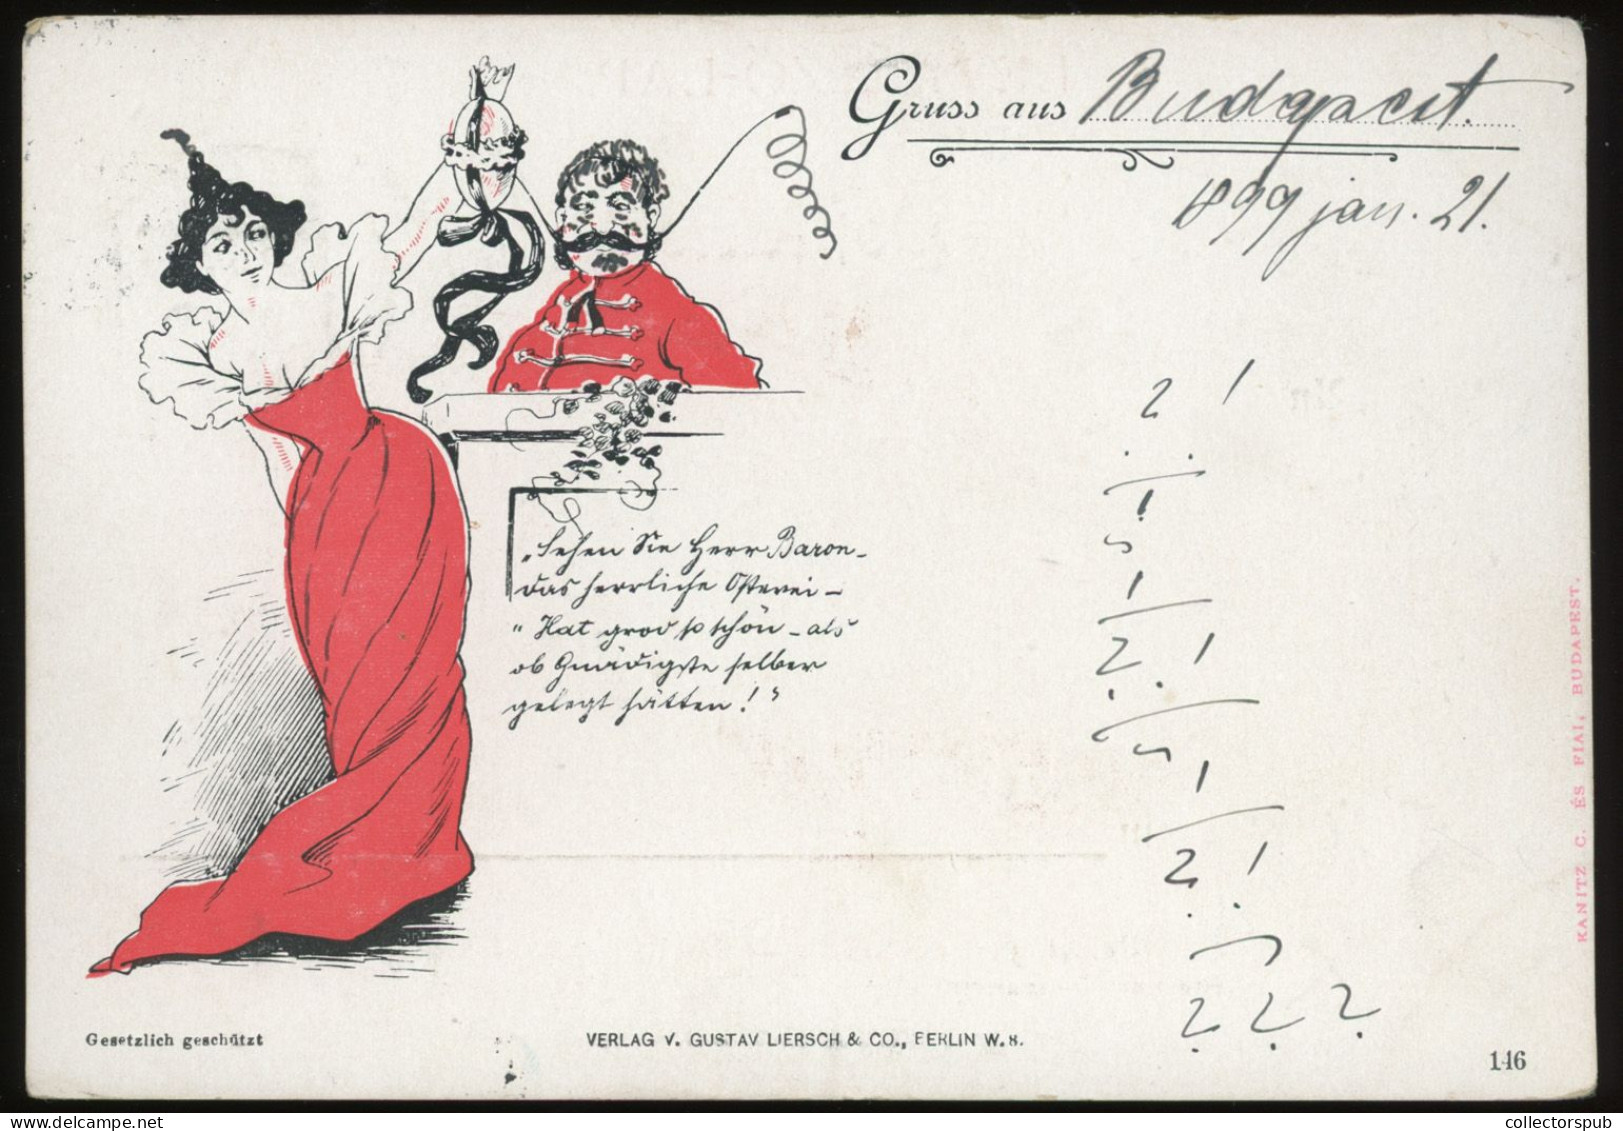 Gruss aus Budapest.
1899 jan. 21.
2 !
!
2 !
!
2 !
? ? ?
„Sehen Sie Herr Baron –
das herrliche Osterei –
"Hat grod so schön – als
ob Gnädigste selber
gelegt hätten!"
KANITZ C. ÉS FIAI, BUDAPEST.
Gesetzlich geschützt
VERLAG V. GUSTAV LIERSCH & CO., BERLIN W. 8.
146
collectorspub